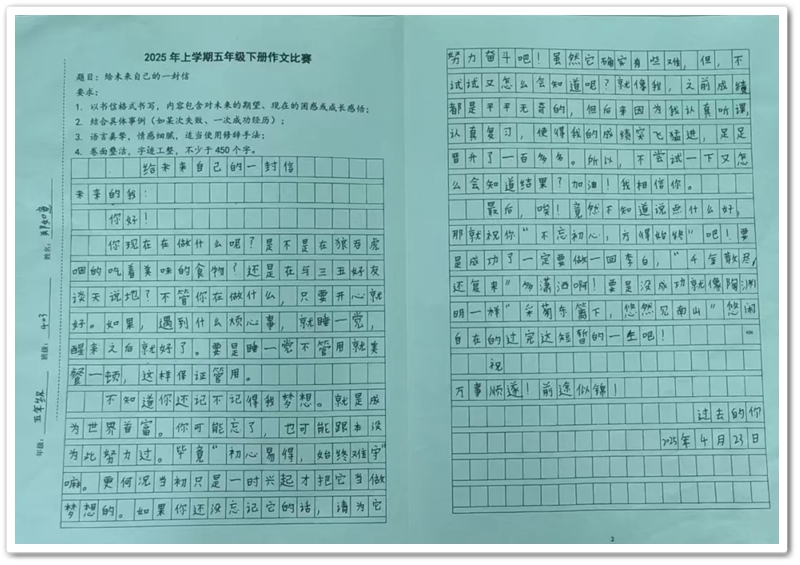 2025年上学期五年级下册作文比赛
题目：给未来自己的一封信
要求：
1. 以书信格式书写，内容包含对未来的期望、现在的困惑或成长感悟；
2. 结合具体事例（如某次失败、一次成功经历）；
3. 语言真挚，情感细腻，适当使用修辞手法；
4. 卷面整洁，字迹工整，不少于450个字。
给未来自己的一封信
未来的我：
你好！
你现在在做什么呢？是不是在狼吞虎
咽的吃着美味的食物？还是在与三五好友
谈天说地？不管你在做什么，只要开心就
好。如果，遇到什么烦心事，就睡一觉，
醒来之后就好了。要是睡一觉不管用就美
餐一顿，这样保证管用。
不知道你还记不记得我梦想。就是成
为世界首富。你可能忘了，也可能跟本没
为此努力过。毕竟“初心易得，始终难守”
嘛。更何况当初只是一时兴起才把它当做
梦想的。如果你还没忘记它的话，请为它
努力奋斗吧！虽然它确实有些难，但，不
试试又怎么会知道呢？就像我，之前成绩
都是平平无奇的，但后来因为我认真听课，
认真复习，使得我的成绩突飞猛进，足足
冒开了一百多名。所以，不尝试一下又怎
么会知道结果？加油！我相信你。
最后，唉！竟然不知道说点什么好，
那就祝你“不忘初心，方得始终”吧！要
是成功了一定要做一回李白，“千金散尽
还复来”多潇洒啊！要是没成功就像陶渊
明一样“采菊东篱下，悠然见南山”悠闲
自在的过完这短暂的一生吧！
祝
万事顺遂！前途似锦！
过去的你
2025年4月23日
姓名：
班级：403
年级：五年级
2